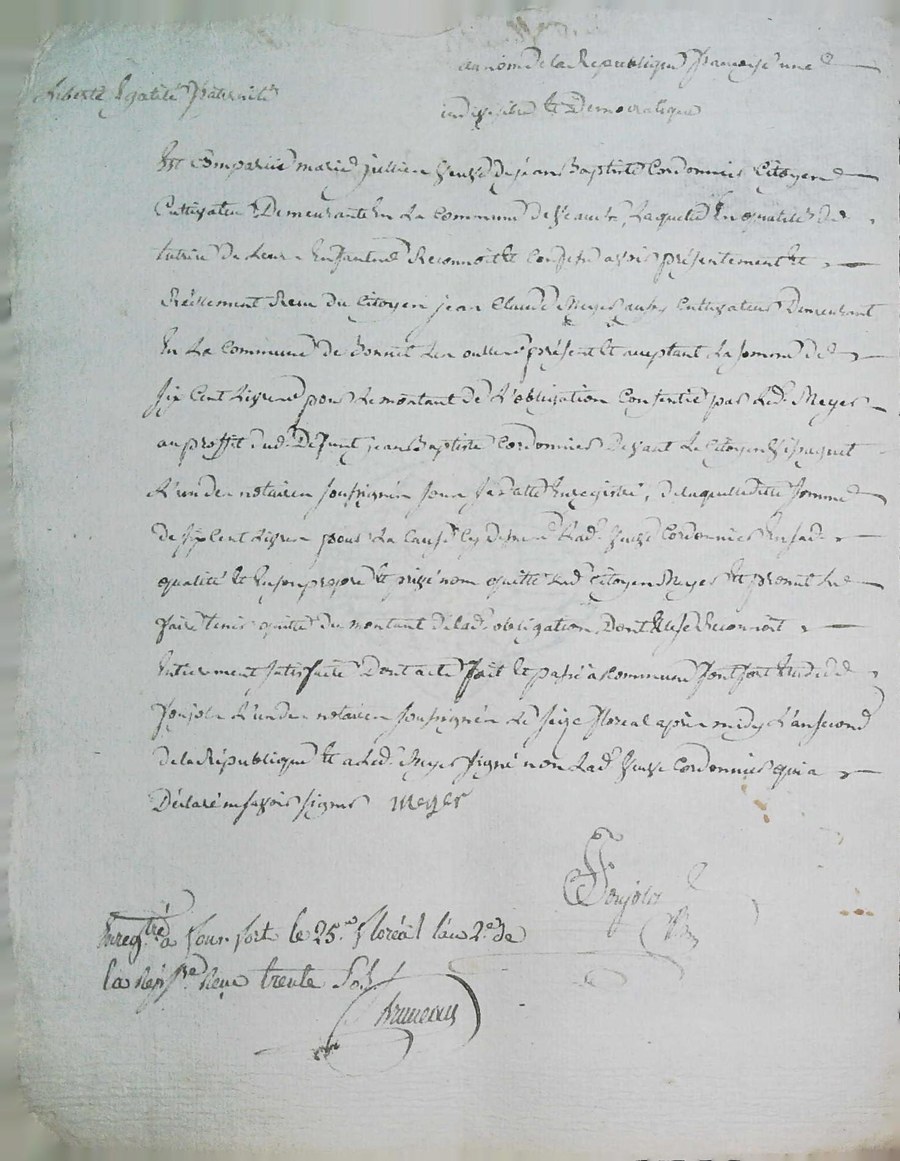 au nom de la Republique françoise une
Liberté Egalité fraternité
indivisible et Democratique
Est Comparüe marie jullien veuve De jean Baptiste Cordonnier Citoyenne
Cultivateur Demeurante En La Commune de Laquelle En qualité de
tutrice de Leurs Enfantens Reconnoit et Confesse avoir présentement et
Réellement Receu du Citoyen jean Claude Meyer aussy Cultivateur Demeurant
En La Commune de Bonnet Les oulles présent et acceptant La somme de
six Cent Livres pour Le montant de L'obligation Consentie par Led. Meyer
au proffit dud. Defunt jean Baptiste Cordonnier Devant Le Citoyen
L'un des notaires soussignés sous sa datte Enregistré, de laquelle ditte somme
de six Cent Livres pour La Cause Cy dessus Lad. veuve Cordonnier En sad.
qualité et En son propre et privé nom quitte Led. Citoyen Meyer et promet Le
faire tenir quitte du montant de lad. obligation Dont Elle se Reconnoit
Entierement satisfaitte Dont acte fait et passé à Commune fontfort Etude de
Ponjola L'un des notaires soussignés Le seize floreal après midy L'an second
de la République Et a Led. Meyer signé non Lad. veuve Cordonnier qui a
Déclaré ne savoir signer meyer
Ponjola
Enregtré à Commune fort le 25.e floréal l'an 2.e de
la Répque Reçu trente Sols
Bruneaux